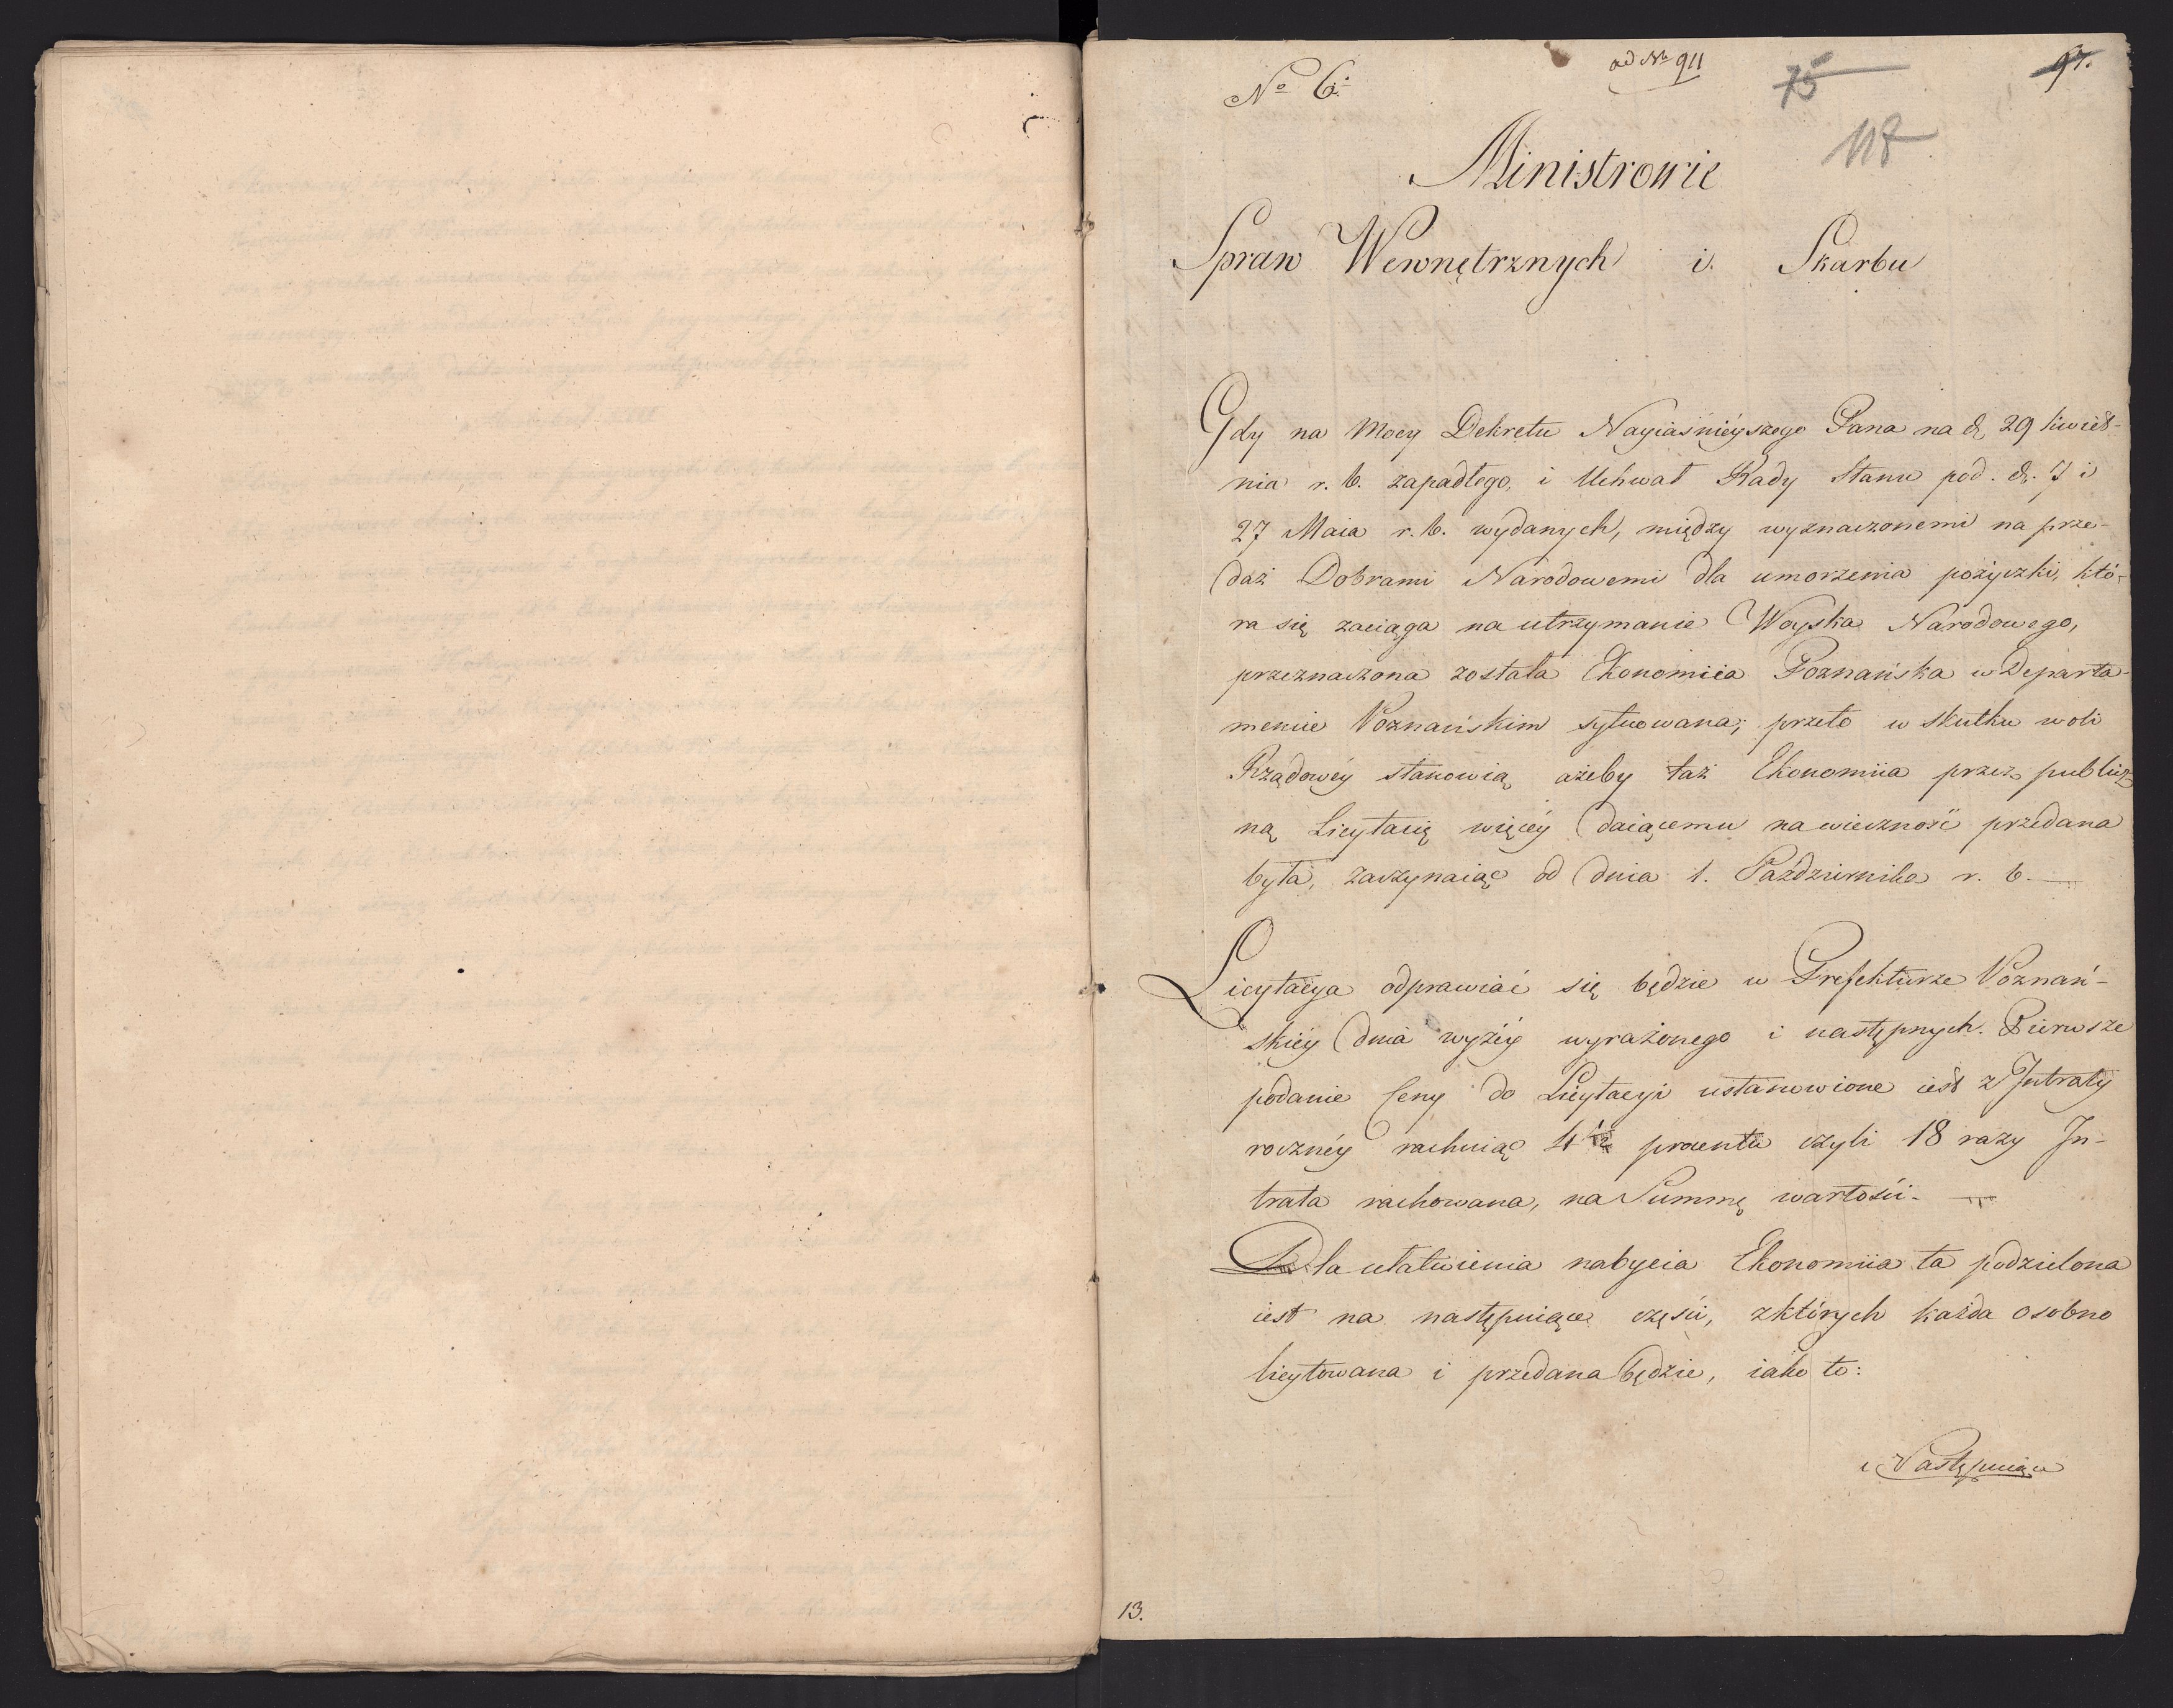 No 6.
ad No 911
75
97.
118
Ministrowie
Spraw Wewnętrznych i Skarbu
Gdy na mocy Dekretu Nayiaśnieyszego Pana na d. 29 kwiet-
nia r. b. zapadłego, i Uchwał Rady Stanu pod. d. 7 i
27 Maia r. b. wydanych, między wyznaczonemi na prze-
daż Dobrami Narodowemi dla umorzenia pożyczki, któ-
ra się zaciąga na utrzymanie Woyska Narodowego,
przeznaczona została Ekonomiia Poznańska w Departa-
mencie Poznańskim sytuowana; przeto w skutku woli
Rządowéy stanowią ażeby taż Ekonomiia przez publicz
ną Licytacią więcéy daiącemu na wieczność przedana
była, zaczynaiąc od dnia 1. Października r. b.
Licytacya odprawiać się będzie w Prefekturze Poznań-
skiéy dnia wyżéy wyrażonego i następnych. Pierwsze
podanie Ceny do Licytacyi ustanowione iest z Intraty
rocznéy rachuiąc procenta czyli 18 razy In-
trata rachowana, na Summę wartości.
Dla ułatwienia nabycia Ekonomiia ta podzielona
iest na następuiące części, z których każda osobno
licytowana i przedana będzie, iako to:
Następuiące
13.